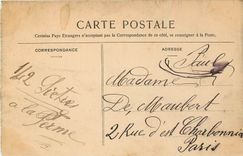 CARTE POSTALE
Certains Pays Étrangers n'acceptent pas la Correspondance de ce côté, se renseigner à la Poste.
CORRESPONDANCE
ADRESSE
Madame
De Maubert
2 Rue d'est Charbonnie
Paris
1/12
à la